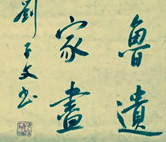 魯遺
家畫
劉子文书